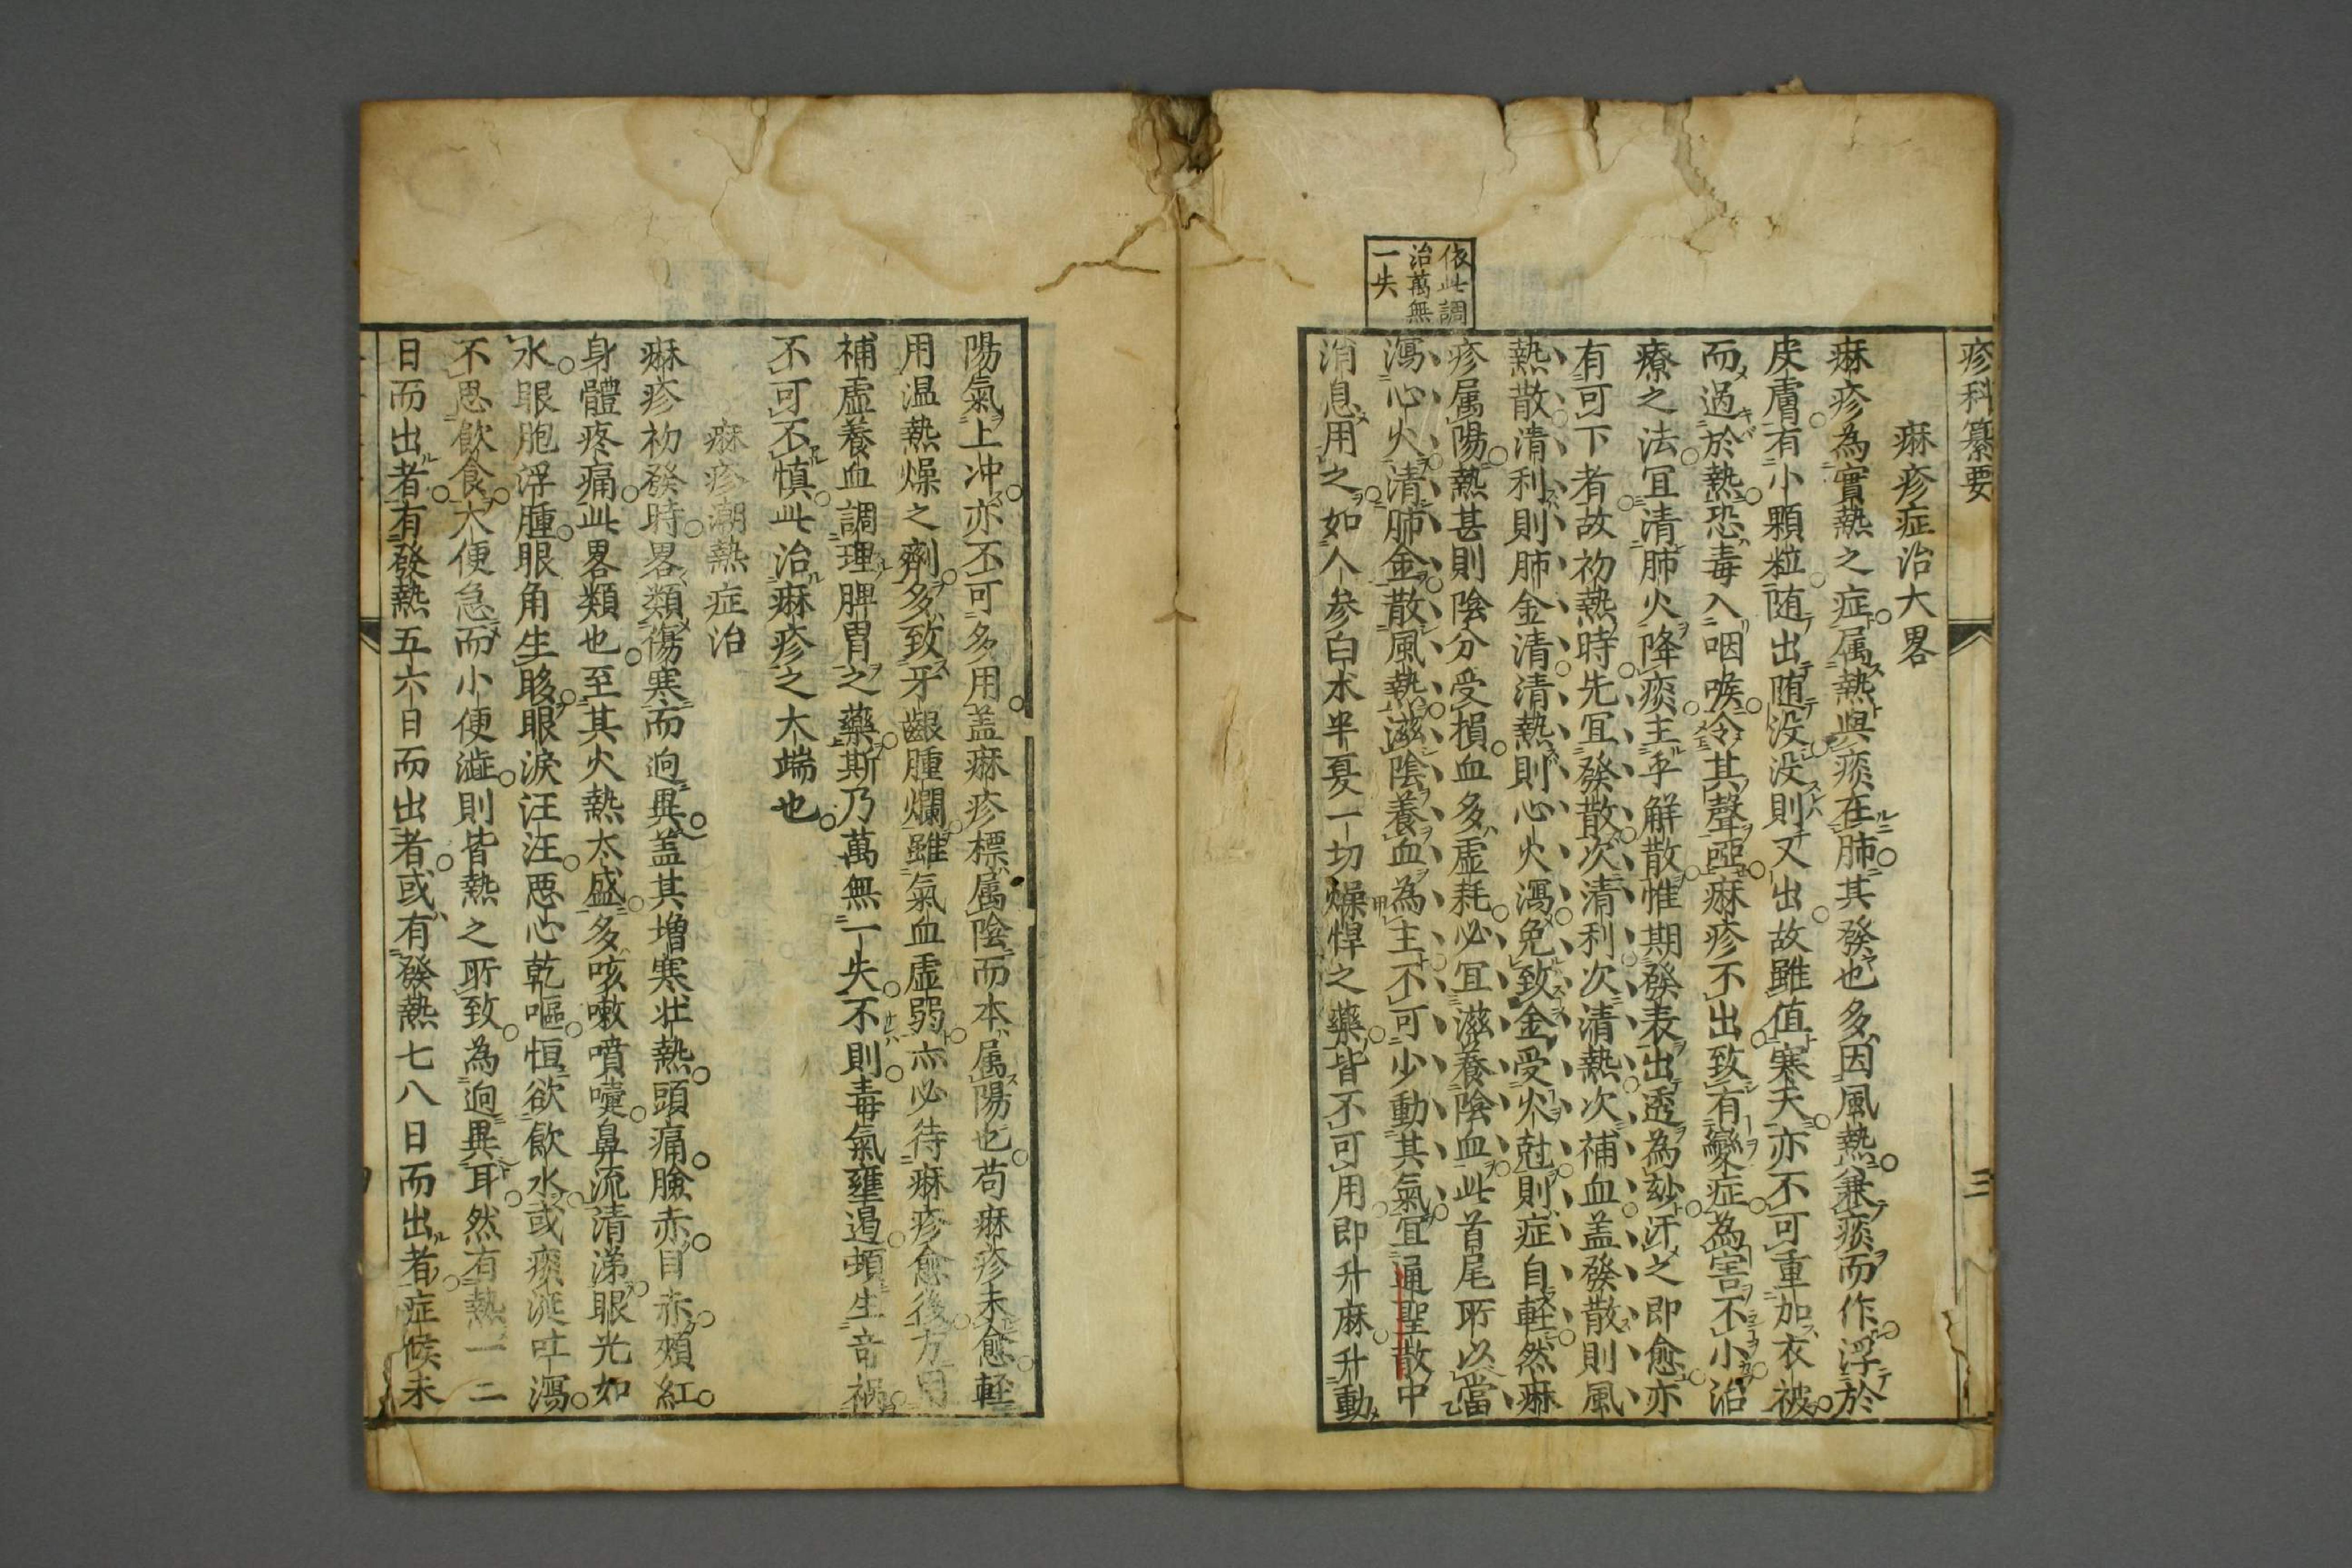 疹科纂要
三
依此調
治萬無
一失
痳疹症治大畧
痳疹為實熱之症属熱與痰在肺其發也多因風熱兼痰而作浮於
皮膚有小顆粒随出随没没則又出故雖值寒天亦不可重加衣被
而過於熱恐毒入咽喉令其聲啞痳疹不出致有變症為害不小治
療之法宜清肺火降痰主乎解散惟期發表出透為玅汗之即愈亦
有可下者故初熱時先宜發散次清利次清熱次補血盖發散則風
熱散清利則肺金清清熱則心火瀉免致金受火尅則症自軽然痳
疹属陽熱甚則陰分受損血多虚耗必宜滋養陰血此首尾所以當
瀉心火清肺金散風熱滋陰養血為主不可少動其氣宜通聖散中
消息用之如人参白朮半夏一切燥悍之藥皆不可用即升麻升動
陽氣上冲亦不可多用盖痳疹標属陰而本属陽也苟痳疹未愈輕
用温熱燥之劑多致牙齦腫爛雖氣血虚弱亦必待痳疹愈後方用
補虚養血調理脾胃之藥斯乃萬無一失不則毒氣壅遏頓生奇禍
不可不慎此治痳疹之大端也
痳疹潮熱症治
痳疹初發時畧類傷寒而迥異盖其増寒壮熱頭痛臉赤目赤頬紅
身體疼痛此畧類也至其火熱太盛多咳嗽噴嚏鼻流清涕眼光如
水眼胞浮腫眼角生眵眼淚汪汪悪心乾嘔恒欲飲水或痰涎吐瀉
不思飲食大便急而小便澁則皆熱之所致為迥異耳然有熱一二
日而出者有發熱五六日而出者或有發熱七八日而出者症候未